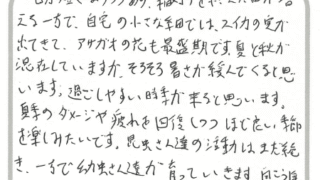 える一方で、自宅の小さな畑では、スイカの実が
出てきて、アサガオの花も最盛期です夏と秋が
混在していますが、そろそろ暑さが緩んでくると思
います。過ごしやすい時季が来ると思います。
真夏のダメージや疲れを回復しつつほど良い季節
を楽しみたいです。昆虫さん達の活動はまだ続
き、一方で幼虫さん達が育っていきます